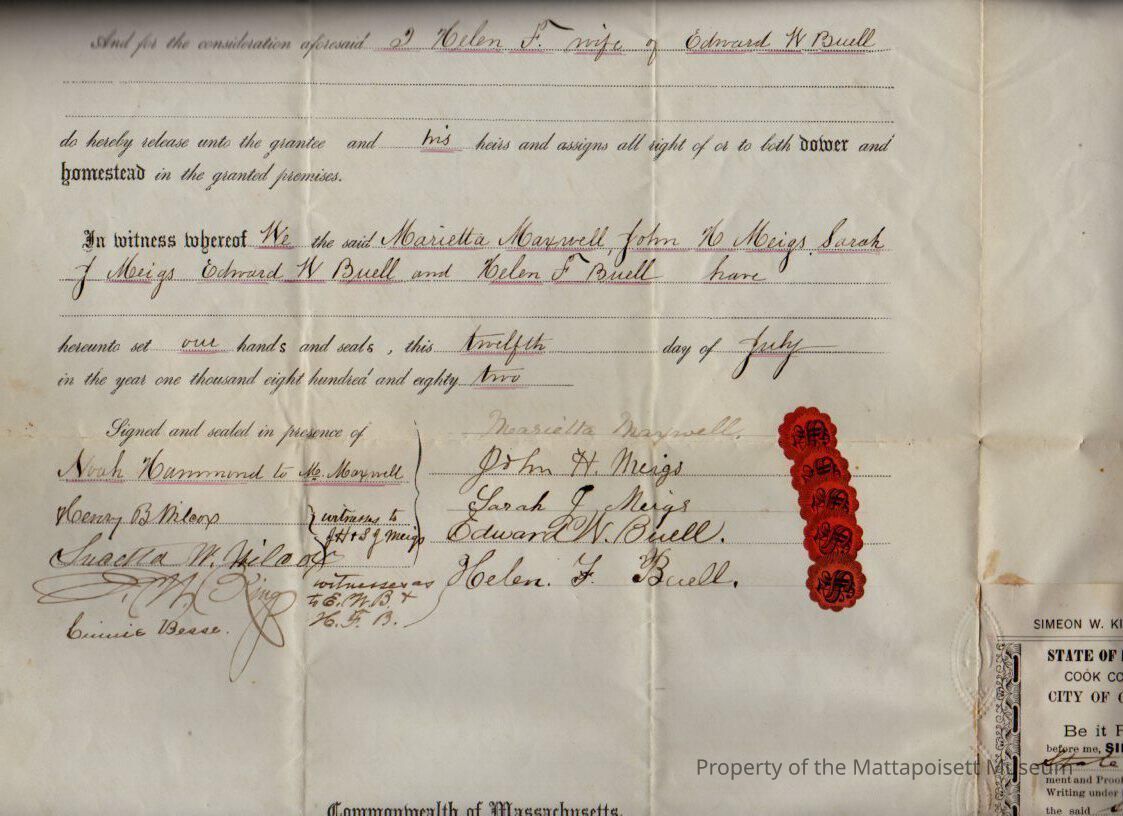 And for the consideration aforesaid I Helen F. wife of Edward W Buell
do hereby release unto the grantee and his heirs and assigns all right of or to both dower and
homestead in the granted premises.
In witness whereof We the said Marietta Maxwell, John H Meigs, Sarah
J Meigs Edward W Buell and Helen F Buell have
hereunto set our hands and seals, this twelfth day of July
in the year one thousand eight hundred and eighty two
Signed and sealed in presence of
Noah Hammond to M. Maxwell
Henry B Wilcox
witnesses to
J H & S J Meigs
W. Wilcox
S. W. King
witnesses as
to E. W. B. &
H. F. B.
Besse.
Marietta Maxwell.
John H. Meigs
Sarah J Meigs
Edward W. Buell.
Helen. F. Buell.
SIMEON W. KI
STATE OF
COOK CO
CITY OF C
Be it
before me, SI
State
ment and Proof
Writing under
the said
Property of the Mattapoisett Museum
Commonwealth of Massachusetts.